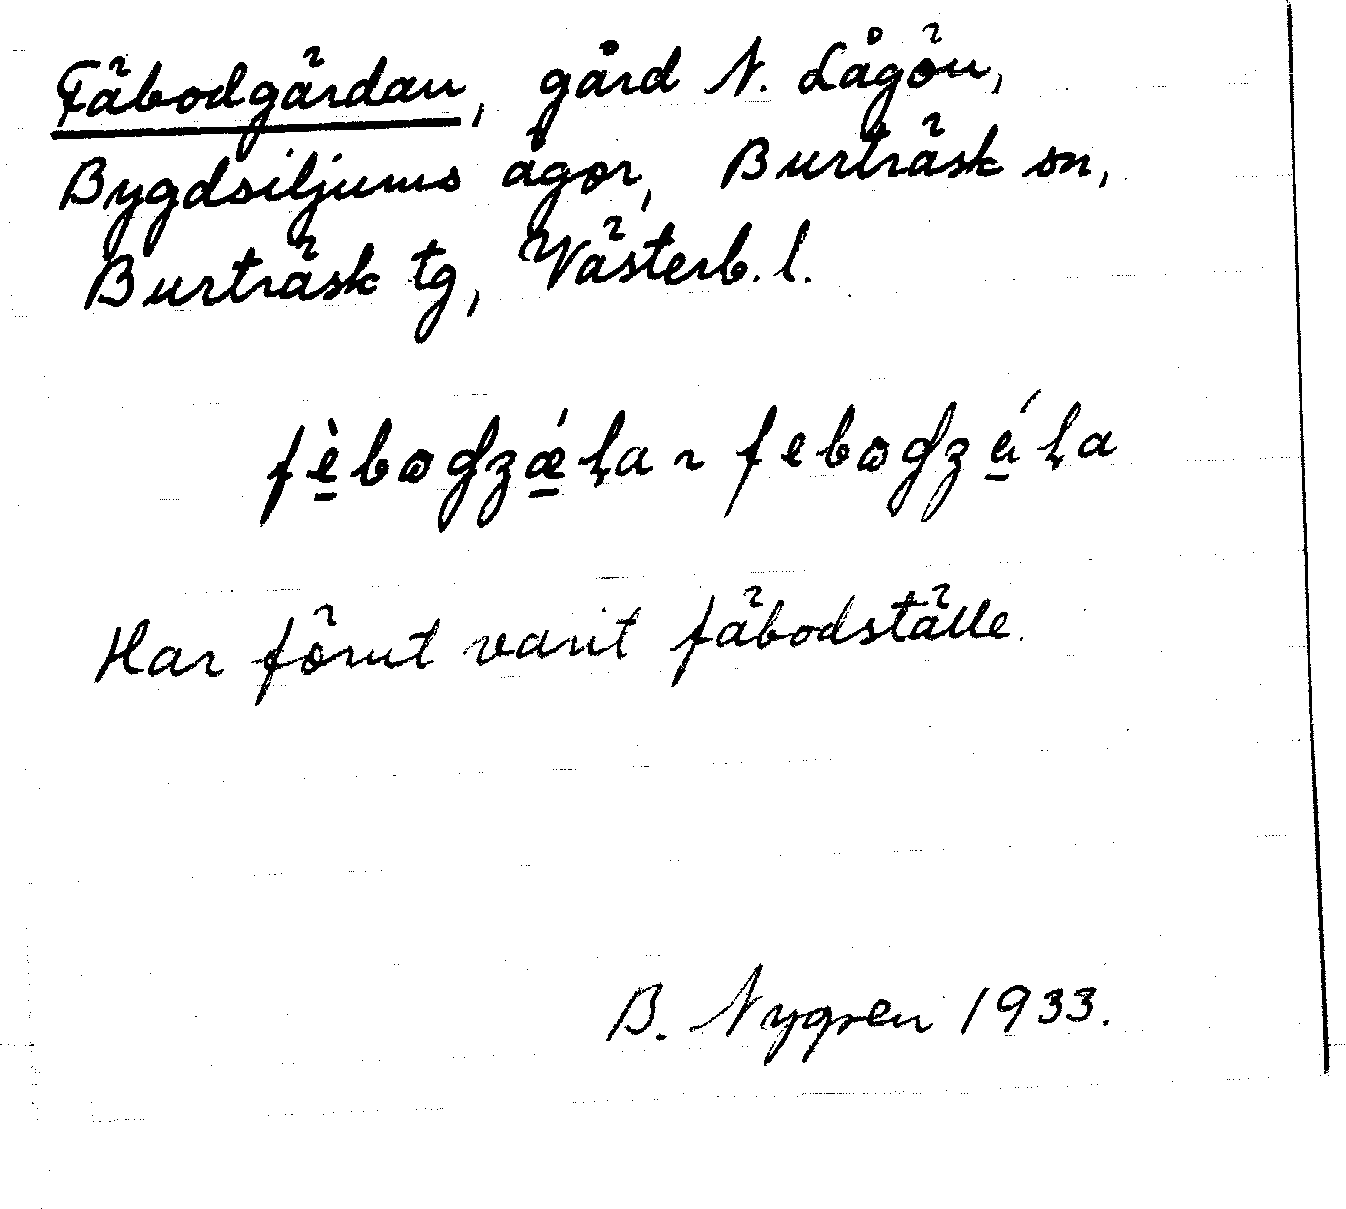 Fäbodgärdan, gård N. Lågön,
Bygdsiljums ägor, Burträsk sn,
Burträsk tg, Västerb. l.
Har förut varit fäbodställe.
B. Nygren 1933.